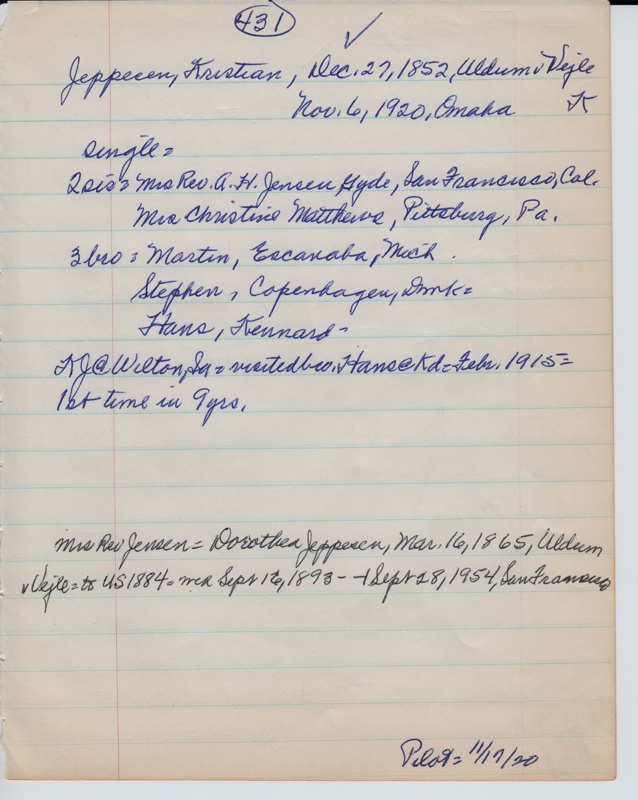 431
✓
Jeppesen, Kristian, Dec. 27, 1852, Uldum v Vejle
Nov. 6, 1920, Omaha K
single =
2 sis = Mrs Rev. A. H. Jensen, Gyde, San Francisco, Cal.
Mrs Christine Matthews, Pittsburg, Pa.
3 bro = Martin, Escanaba, Mich.
Stephen, Copenhagen, Dmk =
Hans, Kennard -
KJ @ Wilton, = visited bro. Hans @ Kd = Febr. 1915 =
1st time in 9 yrs.
Mrs Rev Jensen = Dorothea Jeppesen, Mar. 16, 1865, Uldum
v Vejle = to US 1884 = md Sept 1893 - + Sept 28, 1954, San Francisco
Pilot = 11/17/20